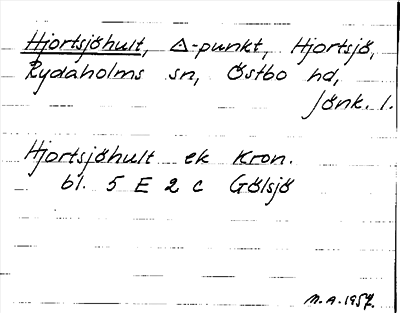 Hjortsjöhult, △-punkt, Hjortsjö,
Rydaholms sn, Östbo hd,
Jönk. l.
Hjortsjöhult ek Kron.
bl. 5 E 2 c Gölsjö
M.A. 1957.